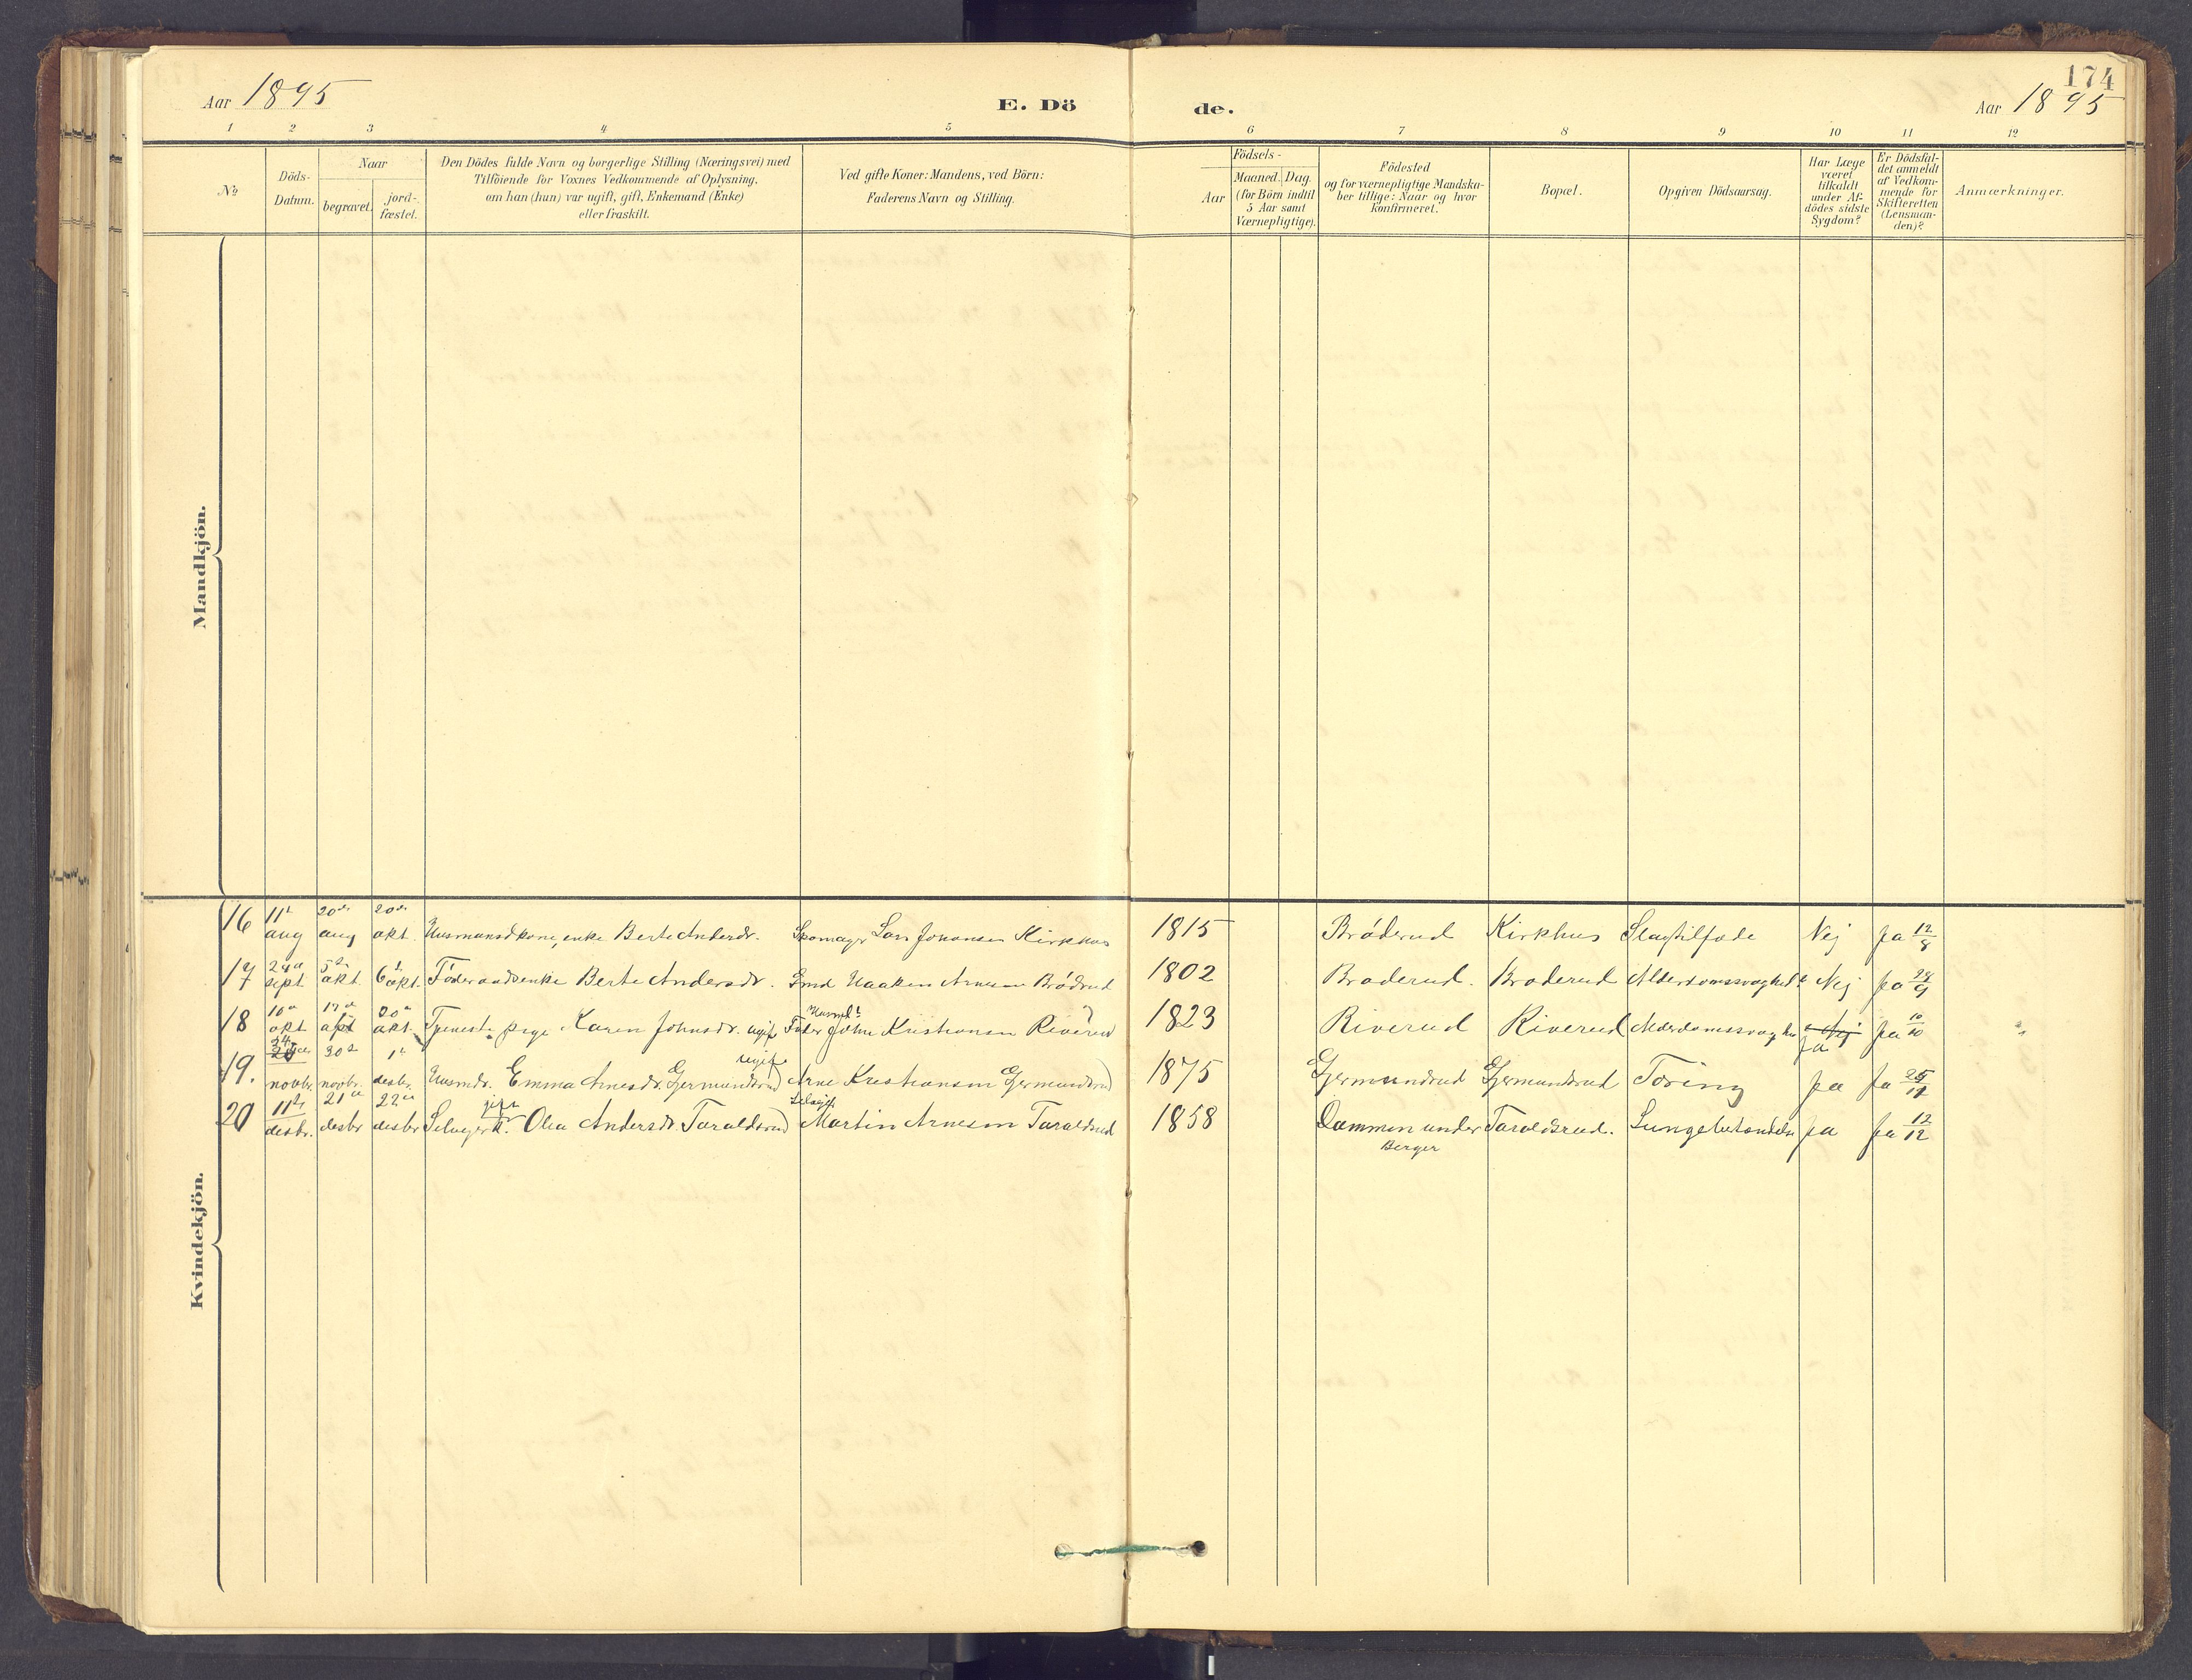 174
Aar 1895
E. Dö
de.
Aar 1895
1 2 3 4 5 6 7 8 9 10 11 12
No
Döds-Datum.
Naar
begravet.
jord-fæstet.
Den Dödes fulde Navn og borgerlige Stilling (Næringsvei) med
Tilföiende for Voxnes Vedkommende af Oplysning,
om han (hun) var ugift, gift, Enkemand (Enke)
eller fraskilt.
Ved gifte Koner: Mandens, ved Börn:
Faderens Navn og Stilling.
Födsels-
Aar
Maaned. Dag.
(for Börn indtil
5 Aar samt
Værnepligtige).
Födested
og for værnepligtige Mandska-
ber tillige: Naar og hvor
konfirmeret.
Bopæl.
Opgiven Dödsaarsag.
Har Læge
været
tilkaldt
under Af-
dödes sidste
Sygdom?
Er Dödsfal-
det anmeldt
af Vedkom-
mende for
Skifteretten
(Lensman-
den)?
Anmærkninger.
Mandkjön.
Kvindekjön.
16 11te aug 20de aug 20de okt. Husmandskone, enke Berte Andersdr. Skomager Lars Johansen Kirkhus 1815 Bröderud Kirkhus Slagtilfæde Nej ja 12/8
17 24de sept. 5te okt. 6te okt. Föderaadsenke Berte Andersdr. Smd Haaken Arnesen Brödrud 1802 Braderud. Braderud Alderdomssvaghed Nej ja 28/9
18 10de okt 19de okt 20de okt. Tjenestepige Karen Johnsdr. ugift Fader Husmd. John Kristiansen Riverud 1823 Riverud Riverud Alderdomssvaghed Nej ja ja 10/10
19. 24de novbr. 30te novbr. 1te desbr. Husmdr. Emma Arnesdr. Germundsrud ugift Arne Kristiansen Germundsrud 1875 Germundrud Germundsrud Tæring ja ja 25/11
20 11te desbr. 21de desbr 22de desbr Selveierk. gift Olea Andersdr. Taraldsrud Selveier Martin Arnesen Taraldsrud 1858 Dammen under Berger Taraldsrud. Lungebetændelse ja ja 12/12